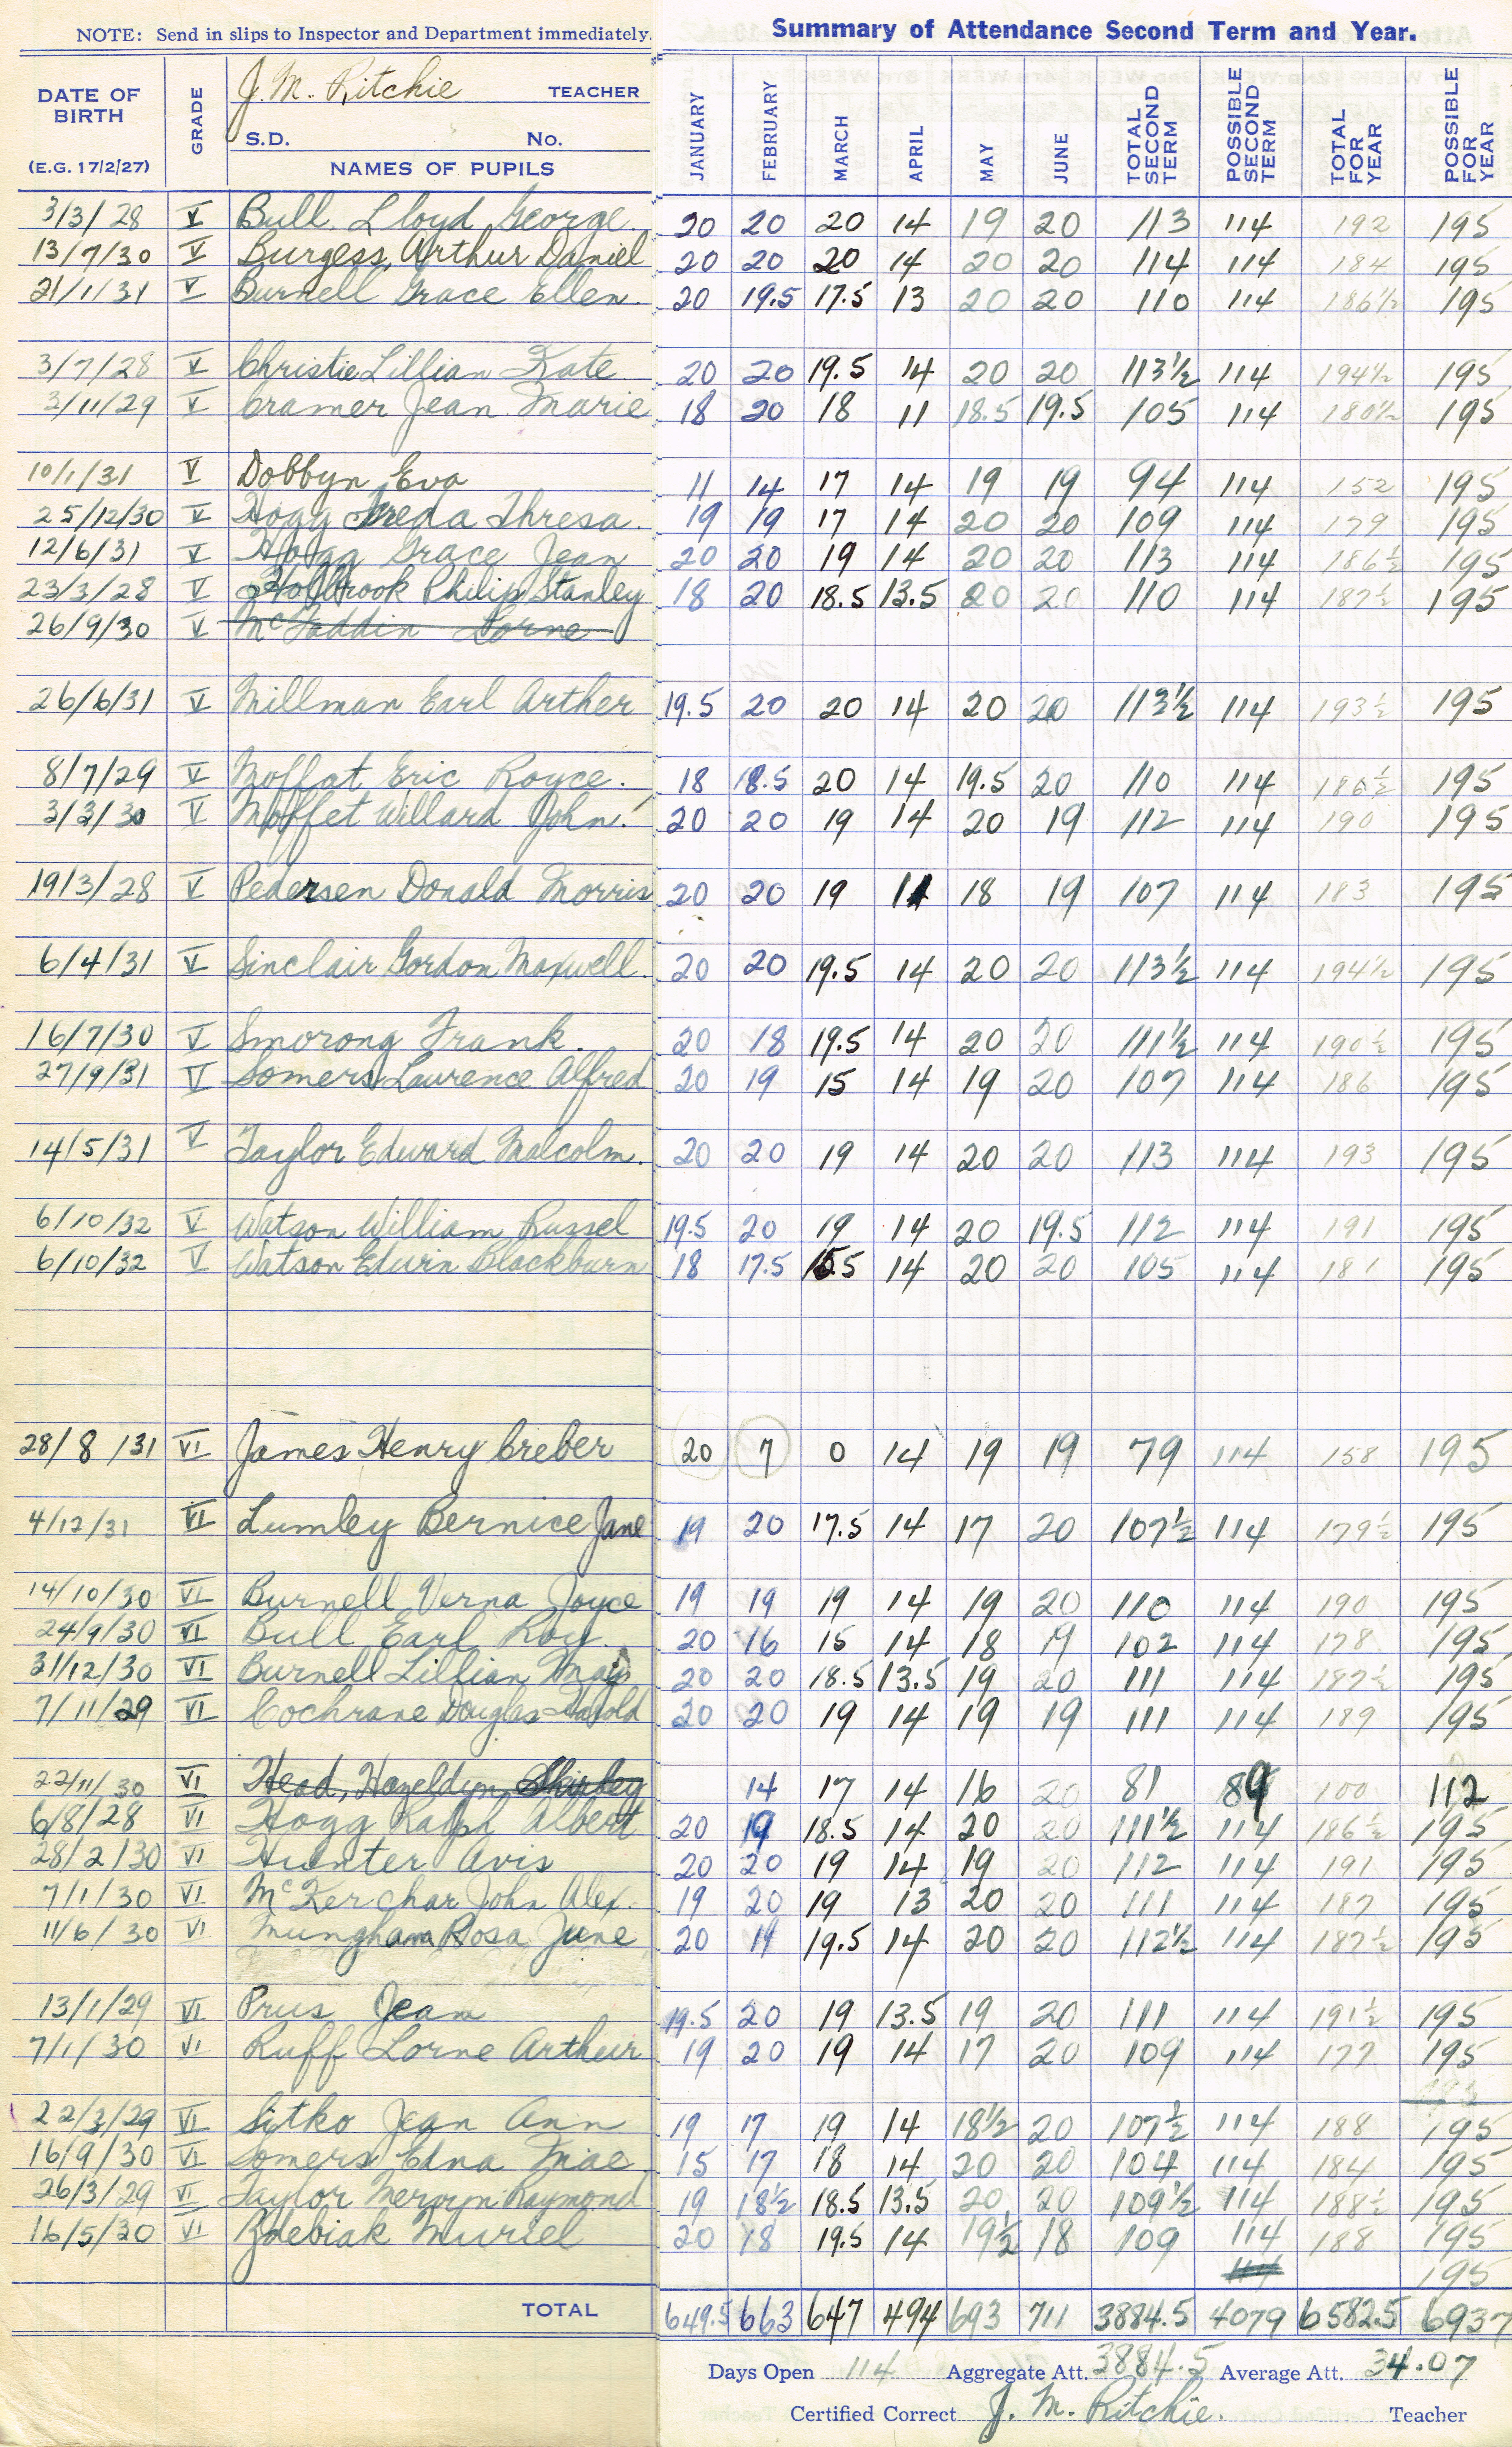 NOTE: Send in slips to Inspector and Department immediately.
Summary of Attendance Second Term and Year.
DATE OF BIRTH (E.G. 17/2/27) GRADE J. M. Ritchie TEACHER S.D. No. NAMES OF PUPILS JANUARY FEBRUARY MARCH APRIL MAY JUNE TOTAL SECOND TERM POSSIBLE SECOND TERM TOTAL FOR YEAR POSSIBLE FOR YEAR
3/3/28 V Bull Lloyd George 20 20 20 14 19 20 113 114 192 195
13/7/30 V Burgess, Arthur Daniel 20 20 20 14 20 20 114 114 184 195
21/1/31 V Burnell Grace Ellen. 20 19.5 17.5 13 20 20 110 114 186½ 195
3/7/28 V Christie Lillian Kate 20 20 19.5 14 20 20 113½ 114 194½ 195
3/11/29 V Cramer Jean Marie 18 20 18 11 18.5 19.5 105 114 180½ 195
10/1/31 V Dobbyn Eva 11 14 17 14 19 19 94 114 152 195
25/12/30 V Hogg Freda Thresa. 19 19 17 14 20 20 109 114 179 195
12/6/31 V Hogg Grace Jean 20 20 19 14 20 20 113 114 186½ 195
23/3/28 V Holbrook Philip Stanley 18 20 18.5 13.5 20 20 110 114 187½ 195
26/9/30 V McFaddin Lorne
26/6/31 V Millman Earl Arther 19.5 20 20 14 20 20 113½ 114 193½ 195
8/7/29 V Moffat Eric Royce. 18 18.5 20 14 19.5 20 110 114 186½ 195
3/3/30 V Moffet Willard John. 20 20 19 14 20 19 112 114 190 195
19/3/28 V Pedersen Donald Morris 20 20 19 11 18 19 107 114 183 195
6/4/31 V Sinclair Gordon Maxwell. 20 20 19.5 14 20 20 113½ 114 194½ 195
16/7/30 V Smorong Frank. 20 18 19.5 14 20 20 111½ 114 190½ 195
27/9/31 V Somers Laurence Alfred 20 19 15 14 19 20 107 114 186 195
14/5/31 V Taylor Edward Malcolm. 20 20 19 14 20 20 113 114 193 195
6/10/32 V Watson William Russel 19.5 20 19 14 20 19.5 112 114 191 195
6/10/32 V Watson Edwin Blackburn 18 17.5 15.5 14 20 20 105 114 181 195
28/8/31 VI James Henry Creber 20 7 0 14 19 19 79 114 158 195
4/12/31 VI Lumley Bernice Jane 19 20 17.5 14 17 20 107½ 114 179½ 195
14/10/30 VI Burnell Verna Joyce 19 19 19 14 19 20 110 114 190 195
24/9/30 VI Bull Earl Roy 20 16 15 14 18 19 102 114 178 195
31/12/30 VI Burnell Lillian May 20 20 18.5 13.5 19 20 111 114 187½ 195
7/11/29 VI Cochrane Douglas Harold 20 20 19 14 19 19 111 114 189 195
22/11/30 VI Head, Hazeldyn Shirley 14 17 14 16 20 81 89 100 112
6/8/28 VI Hogg Ralph Albert 20 19 18.5 14 20 20 111½ 114 186½ 195
28/2/30 VI Hunter Avis 20 20 19 14 19 20 112 114 191 195
7/1/30 VI McKerchar John Alex. 19 20 19 13 20 20 111 114 187 195
11/6/30 VI Mungham Rosa June 20 19 19.5 14 20 20 112½ 114 187½ 195
13/1/29 VI Prus Jean 19.5 20 19 13.5 19 20 111 114 191½ 195
7/1/30 VI Ruff Lorne Arthur 19 20 19 14 17 20 109 114 177 195
22/3/29 VI Sitko Jean Ann 19 17 19 14 18½ 20 107½ 114 188 195
16/9/30 VI Somers Edna Mae 15 17 18 14 20 20 104 114 184 195
26/3/29 VI Taylor Mervyn Raymond 19 18½ 18.5 13.5 20 20 109½ 114 188½ 195
16/5/30 VI Zdebiak Muriel 20 18 19.5 14 19½ 18 109 114 188 195
114 195
TOTAL 649.5 663 647 494 693 711 3884.5 4079 6582.5 6937
Days Open 114 Aggregate Att. 3884.5 Average Att. 34.07
Certified Correct J. M. Ritchie. Teacher